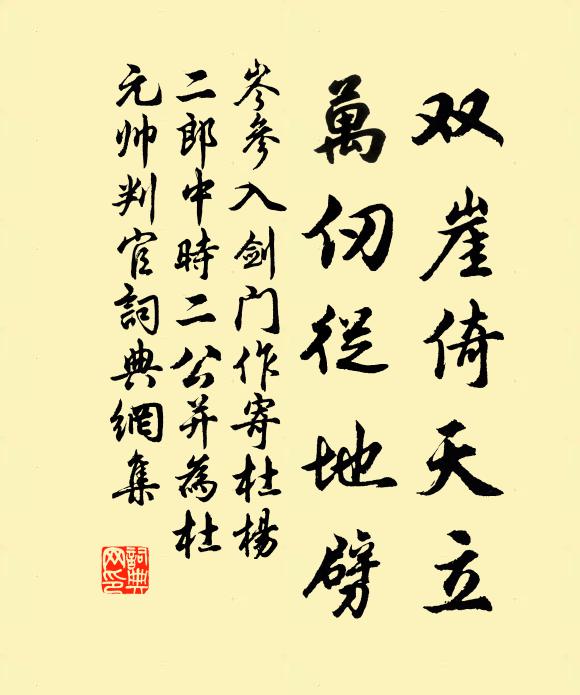 双崖倚天立
萬仞從地劈
岑參入剑门作寄杜楊
二郎中時二公并為杜
元帅判官詞典網集
詞典网印